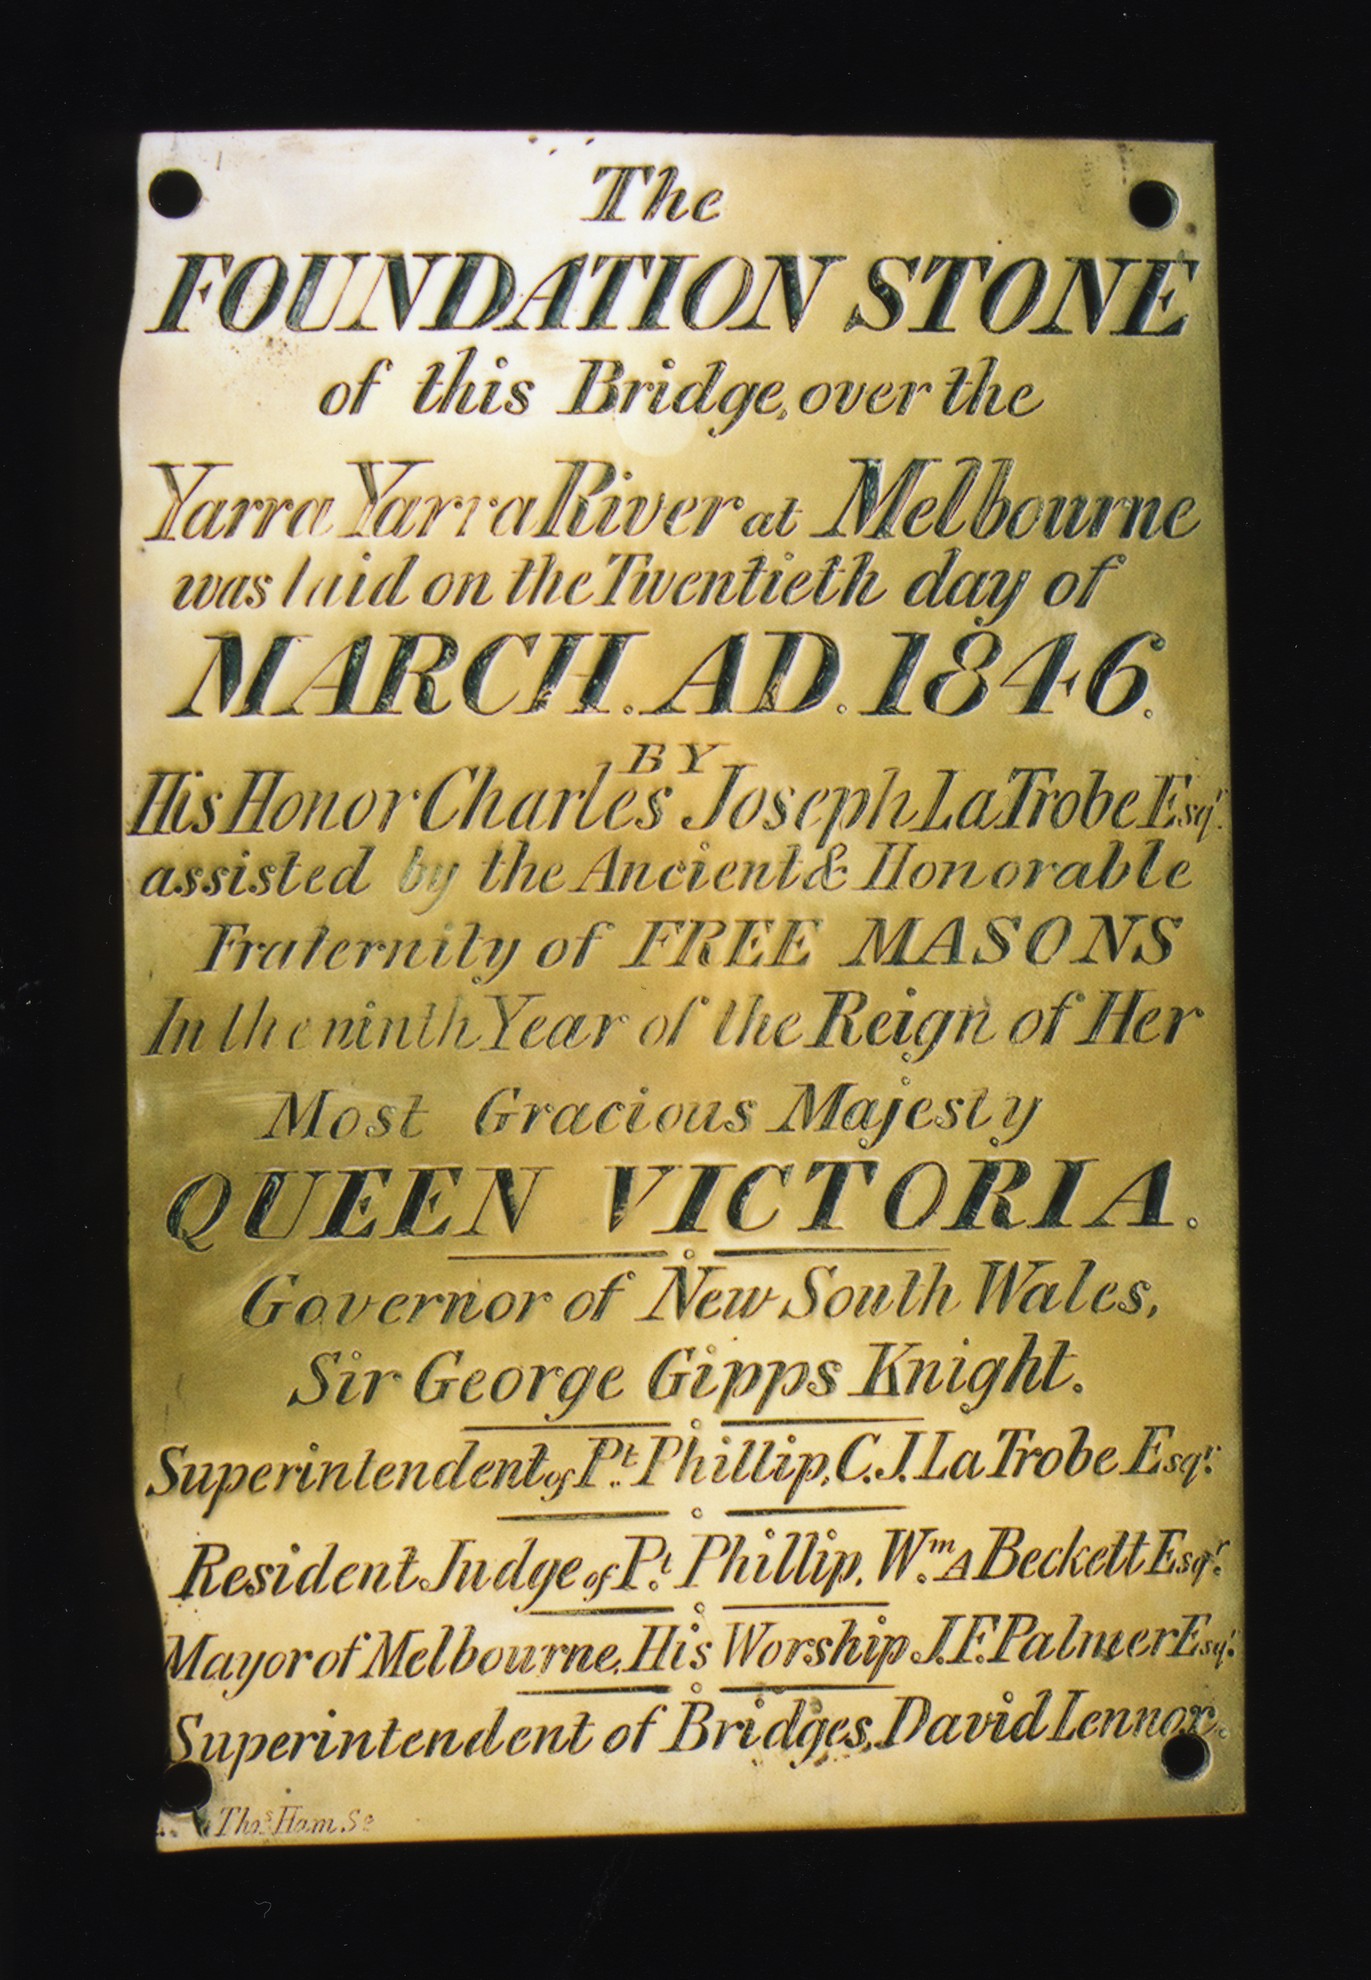 The
FOUNDATION STONE
of this Bridge, over the
Yarra Yarra River at Melbourne
was laid on the Twentieth day of
MARCH. AD. 1846.
BY
His Honor Charles Joseph La Trobe Esqr.
assisted by the Ancient & Honorable
Fraternity of FREE MASONS
In the ninth Year of the Reign of Her
Most Gracious Majesty
QUEEN VICTORIA.
Governor of New South Wales,
Sir George Gipps Knight.
Superintendent of Pt. Phillip, C. J. La Trobe Esqr.
Resident Judge of Pt. Phillip, Wm. A Beckett Esqr.
Mayor of Melbourne, His Worship J. F. Palmer Esqr.
Superintendent of Bridges, David Lennox.
Thos. Ham. Sc